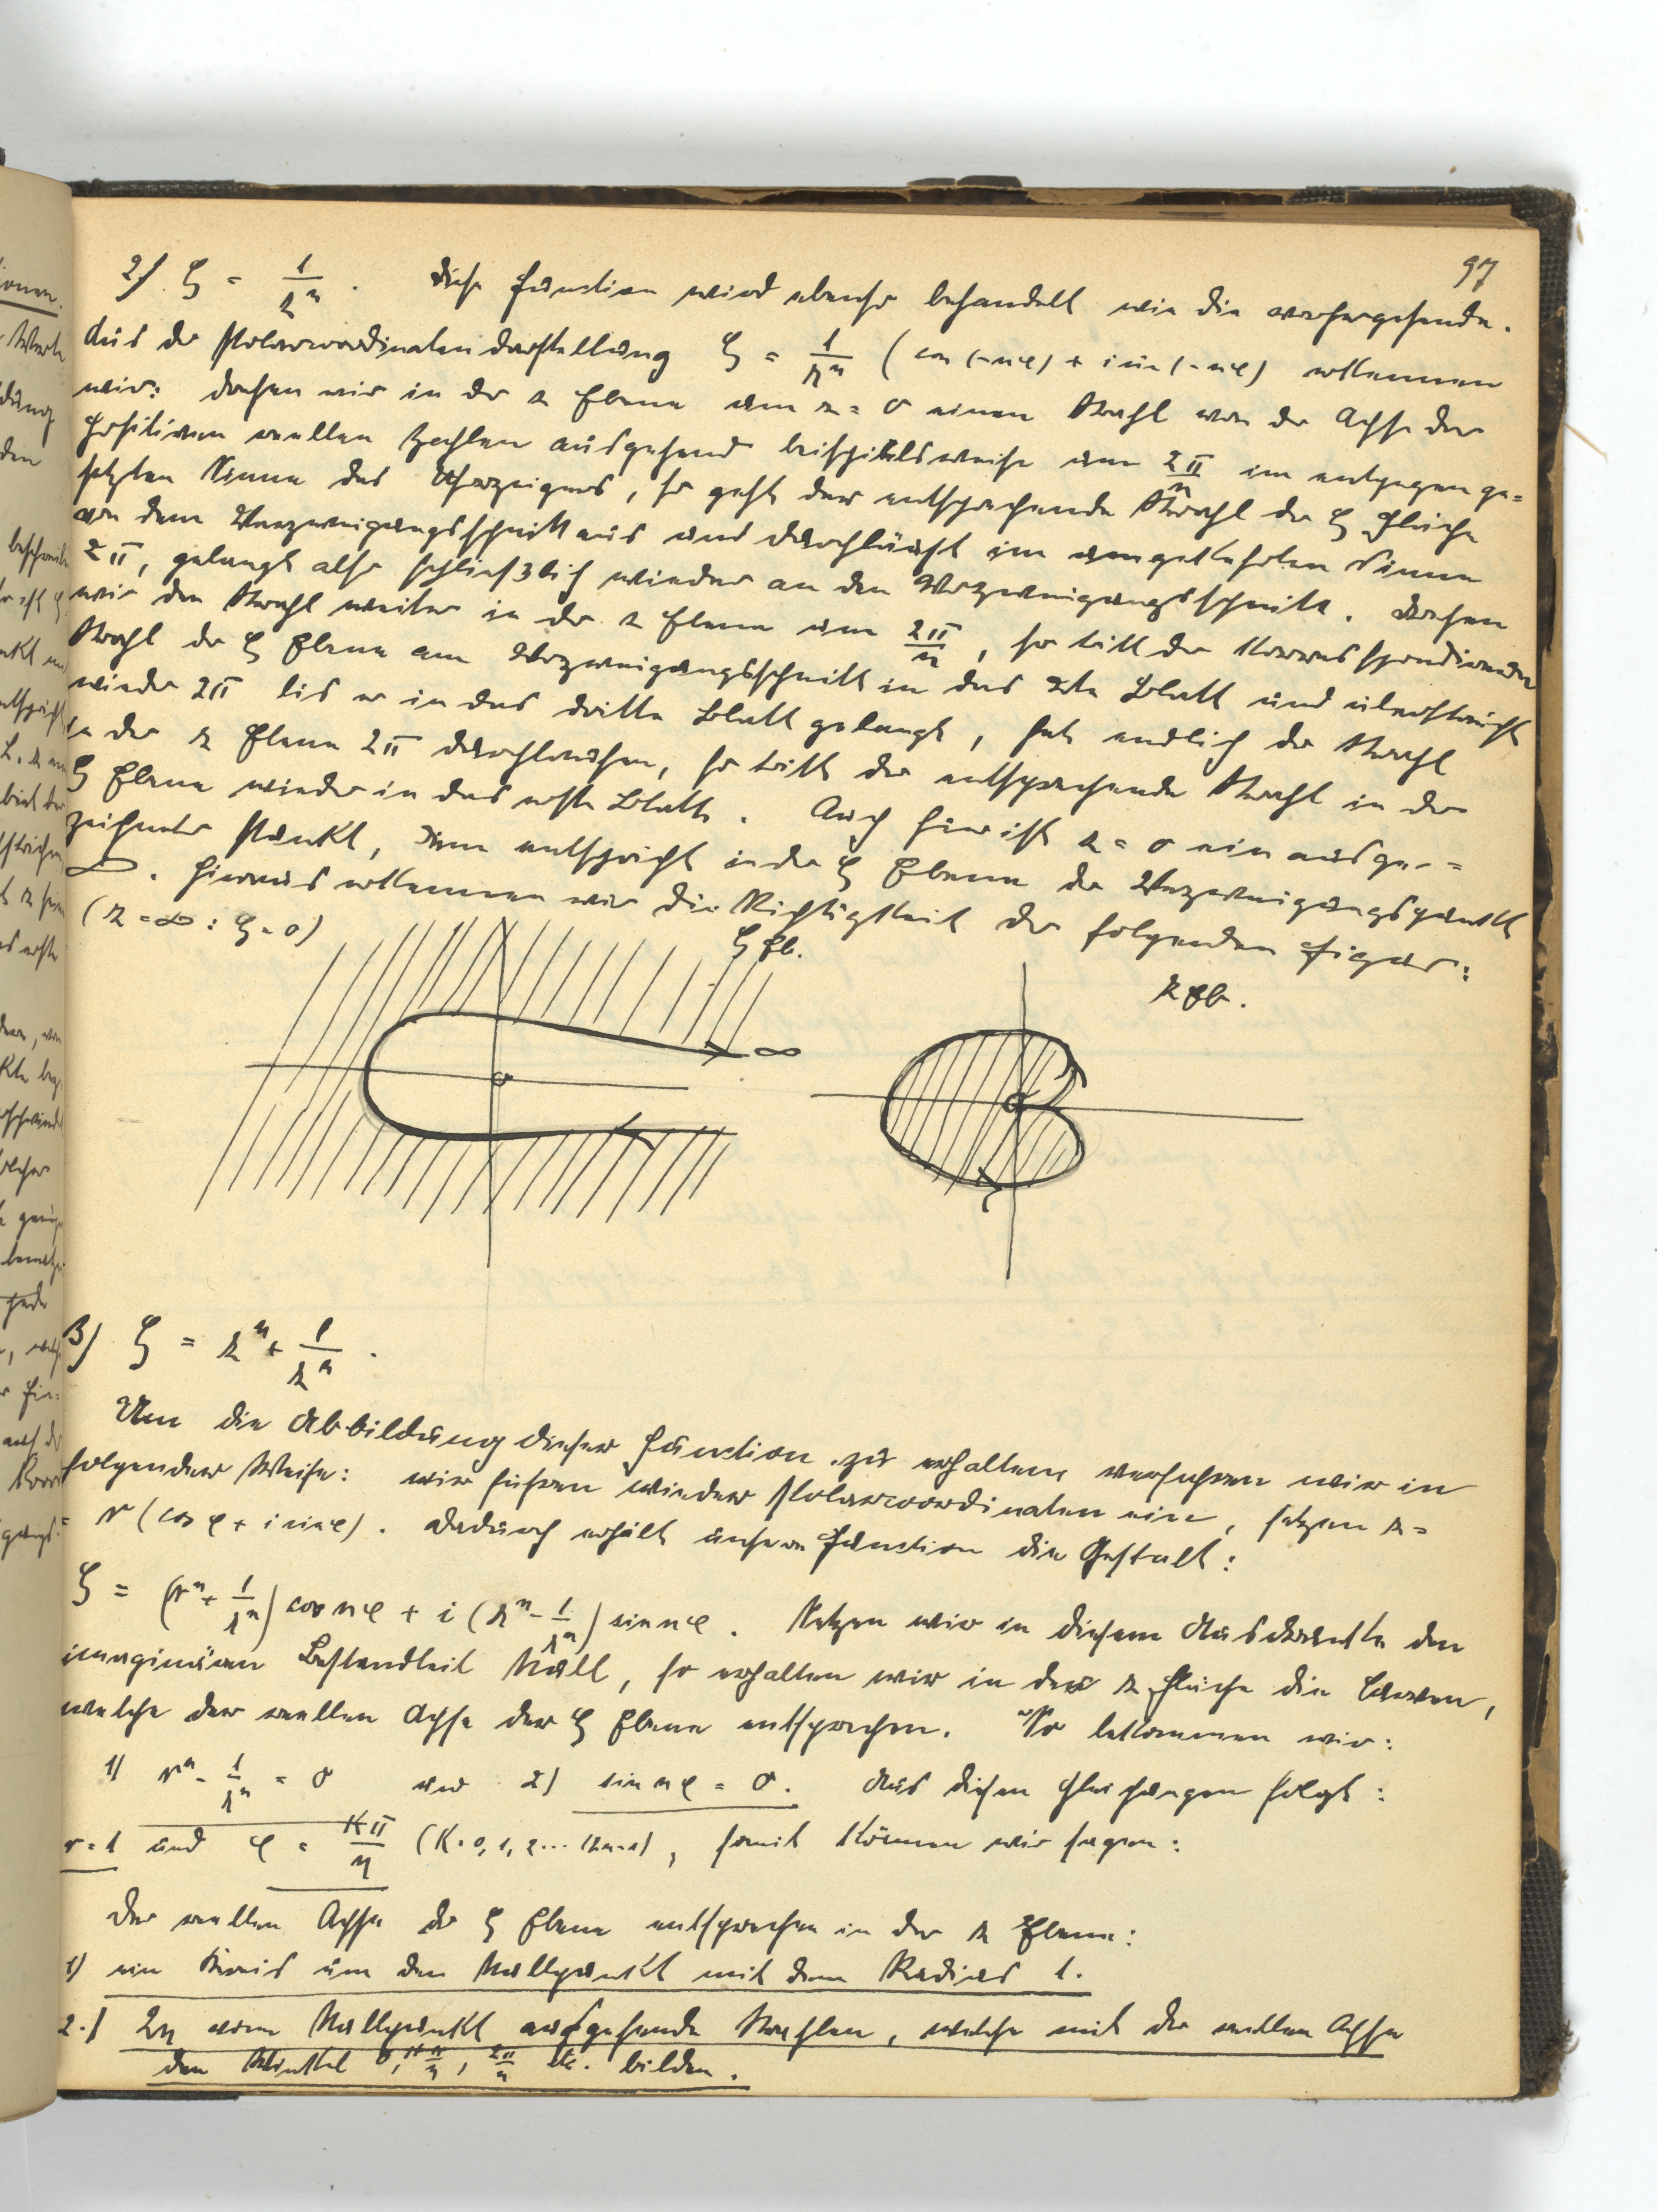 97
2) ζ = 1/zⁿ. Diese Function wird ebenso behandelt wie die vorhergehende.
Aus der Polarcoordinatendarstellung ζ = 1/rⁿ (cos(-nφ) + i sin(-nφ) erkennen
wir: drehen wir in der z Ebene um z = 0 einen Strahl von der Achse der
positiven reellen Zahlen ausgehend beispielsweise um 2π/n im entgegenge=
setzten Sinne des Uhrzeigers, so geht der entsprechende Strahl der ζ Fläche
von dem Verzweigungsschnitt aus und durchläuft im umgekehrten Sinne
2π, gelangt also schließlich wieder an den Verzweigungsschnitt. Drehen
wir den Strahl weiter in der z Ebene um 2π/n, so tritt der korrespondierende
Strahl der ζ Ebene am Verzweigungsschnitt in das 2te Blatt und überstreicht
wieder 2π bis er in das dritte Blatt gelangt, hat endlich der Strahl
in der z Ebene 2π durchlaufen, so tritt der entsprechende Strahl in der
ζ Ebene wieder in das erste Blatt. Auch hier ist z = 0 ein ausge-=
zeichneter Punkt, ihm entspricht in der ζ Ebene der Verzweigungspunkt
∞. Hieraus erkennen wir die Richtigkeit der folgenden Figur:
(z = ∞ : ζ = 0)
ζ Eb.
z Eb.
∞
0
0
3) ζ = zⁿ + 1/zⁿ.
Um die Abbildung dieser Function zu erhalten, verfahren wir in
folgender Weise: wir führen wieder Polarcoordinaten ein, setzen z =
= r (cos φ + i sin φ). Dadurch erhält unsere Function die Gestalt:
ζ = (rⁿ + 1/rⁿ) cos nφ + i (rⁿ - 1/rⁿ) sin nφ. Setzen wir in diesem Ausdrucke den
imaginären Bestandteil Null, so erhalten wir in der z Fläche die Curven,
welche der reellen Achse der ζ Ebene entsprechen. So bekommen wir:
1) rⁿ - 1/rⁿ = 0 und 2) sin nφ = 0. Aus diesen Gleichungen folgt:
r = 1 und φ = Kπ/n (K = 0, 1, 2 ... (2n-1), somit können wir sagen:
Der reellen Achse der ζ Ebene entsprechen in der z Ebene:
1) ein Kreis um den Nullpunkt mit dem Radius 1.
2.) 2n vom Nullpunkt ausgehende Strahlen, welche mit der reellen Achse
den Winkel 0, π/n, 2π/n etc. bilden.